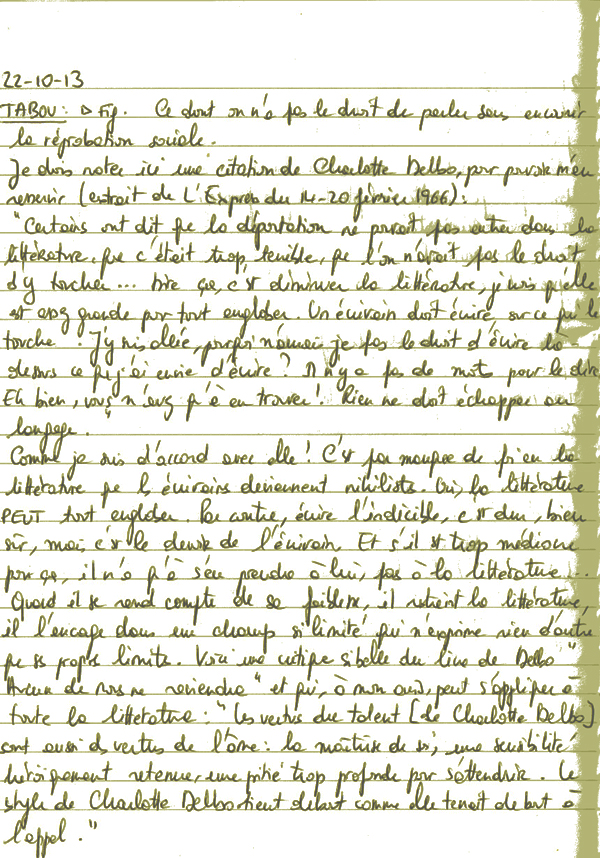 22-10-13
TABOU : ▷ Fig. Ce dont on n'a pas le droit de parler sans encourir
la réprobation sociale.
Je dois noter ici une citation de Charlotte Delbo, pour pouvoir m'en
revenir (extrait de L'Express du 14-20 février 1966) :
"Certains ont dit que la déportation ne pouvait pas entrer dans la
littérature, que c'était trop terrible, que l'on n'avait pas le droit
d'y toucher... Dire ça, c'est diminuer la littérature, je crois qu'elle
est assez grande pour tout englober. Un écrivain doit écrire sur ce qui le
touche. J'y suis allée, pourquoi n'aurais-je pas le droit d'écrire là-
dessus ce que j'ai envie d'écrire ? Il n'y a pas de mots pour le dire.
Eh bien, vous n'avez qu'à en trouver ! Rien ne doit échapper au
langage."
Comme je suis d'accord avec elle ! C'est par manque de foi en la
littérature que les écrivains deviennent nihilistes. Oui, la littérature
PEUT tout englober. Par contre, écrire l'indicible, c'est dur, bien
sûr, mais c'est le devoir de l'écrivain. Et s'il est trop médiocre
pour ça, il n'a qu'à s'en prendre à lui, pas à la littérature...
Quand il se rend compte de sa faiblesse, il restreint la littérature,
il l'encage dans un champ si limité qui n'exprime rien d'autre
que ses propres limites. Voici une critique si belle du livre de Delbo "
Aucun de nous ne reviendra" et qui, à mon avis, peut s'appliquer à
toute la littérature : "Les vertus du talent [de Charlotte Delbo]
sont aussi des vertus de l'âme : la maîtrise de soi, une sensibilité
héroïquement retenue, une pitié trop profonde pour s'attendrir. Le
style de Charlotte Delbo tient debout comme elle tenait debout à
l'appel."